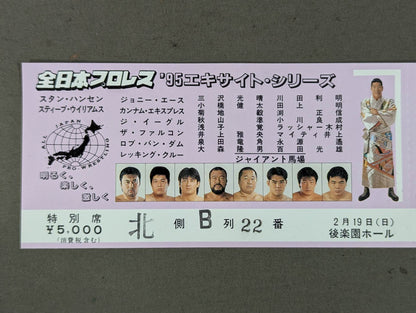 全日本プロレス '95エキサイト・シリーズ
スタン・ハンセン
スティーブ・ウイリアムス
ALL JAPAN
PRO WRESTLING
明るく、
楽しく、
激しく
ジョニー・エース
カンナム・エキスプレス
ジ・イーグル
ザ・ファルコン
ロブ・バン・ダム
レッキング・クルー
三沢光晴 川田利明
小橋健太 田上明
菊地毅 渕正信
秋山準 小川良成
浅子覚 ラッシャー木村
井上雅央 マイティ井上
泉田竜角 永源遙
大森隆男 百田光雄
ジャイアント馬場
特別席
¥5,000
(消費税含む)
北側 B列 22番
2月19日(日)
後楽園ホール